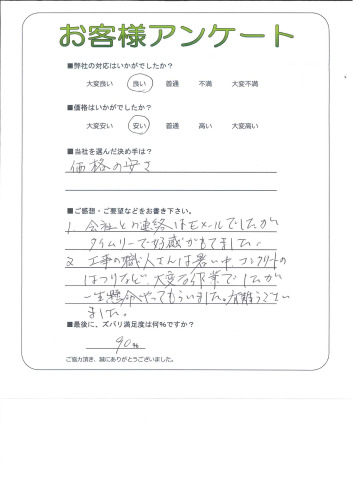 お客様アンケート
■弊社の対応はいかがでしたか?
大変良い 良い 普通 不満 大変不満
■価格はいかがでしたか?
大変安い 安い 普通 高い 大変高い
■当社を選んだ決め手は?
価格の安さ
■ご感想・ご要望などをお書き下さい。
1. 会社との連絡はEメールでしたが
タイムリーで好感がもてました。
2 工事の職人さんは暑い中、コンクリートの
はつりなど、大変な作業でしたが
一生懸命やってもらいました。有難うござい
ました。
■最後に、ズバリ満足度は何%ですか?
90%
ご協力頂き、誠にありがとうございました。